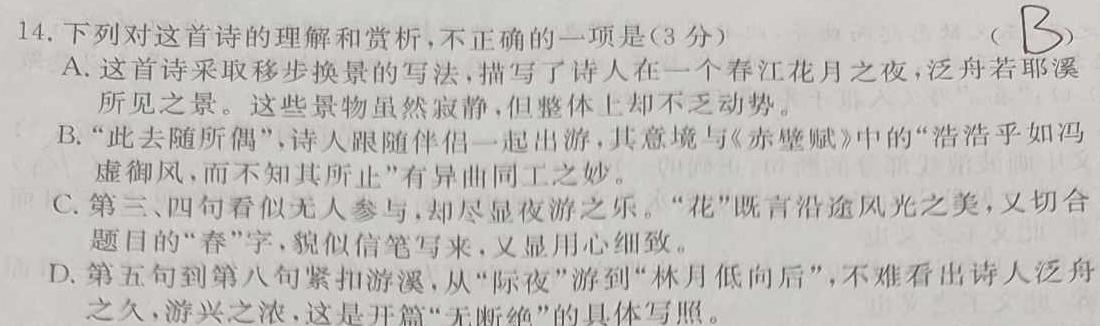 14. 下列对这首诗的理解和赏析,不正确的一项是(3分) (B)
A. 这首诗采取移步换景的写法,描写了诗人在一个春江花月之夜,泛舟若耶溪
所见之景。这些景物虽然寂静,但整体上却不乏动势。
B. “此去随所偶”,诗人跟随伴侣一起出游,其意境与《赤壁赋》中的“浩浩乎如冯
虚御风,而不知其所止”有异曲同工之妙。
C. 第三、四句看似无人参与,却尽显夜游之乐。“花”既言沿途风光之美,又切合
题目的“春”字,貌似信笔写来,又显用心细致。
D. 第五句到第八句紧扣游溪,从“际夜”游到“林月低向后”,不难看出诗人泛舟
之久,游兴之浓,这是开篇“无断绝”的具体写照。